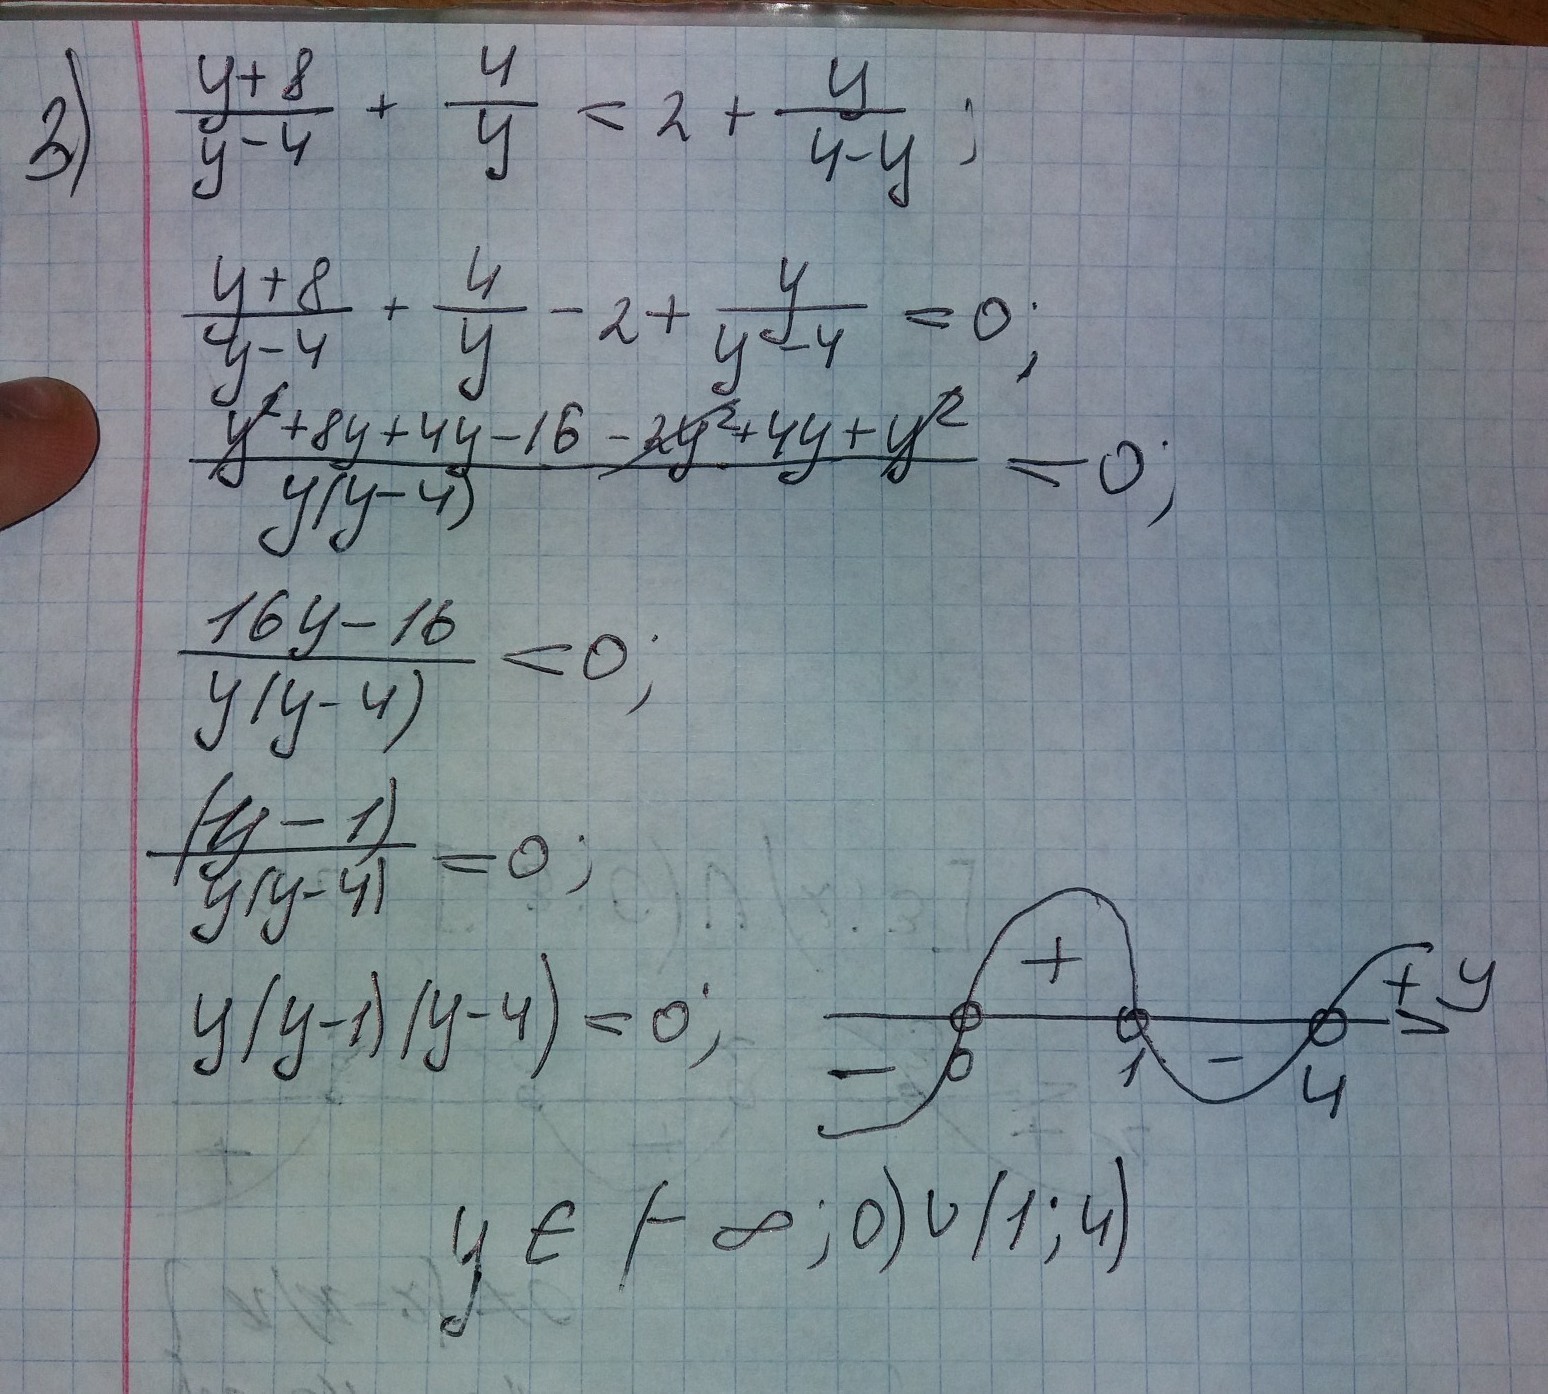 3) (y+8)/(y-4) + 4/y < 2 + y/(4-y);
(y+8)/(y-4) + 4/y - 2 + y/(y-4) < 0;
(y²+8y+4y-16-2y²+4y+y²)/(y(y-4)) < 0;
(16y-16)/(y(y-4)) < 0;
(y-1)/(y(y-4)) < 0;
y(y-1)(y-4) < 0;
+ + y
- 0 1 - 4
y ∈ (-∞;0)∪(1;4)